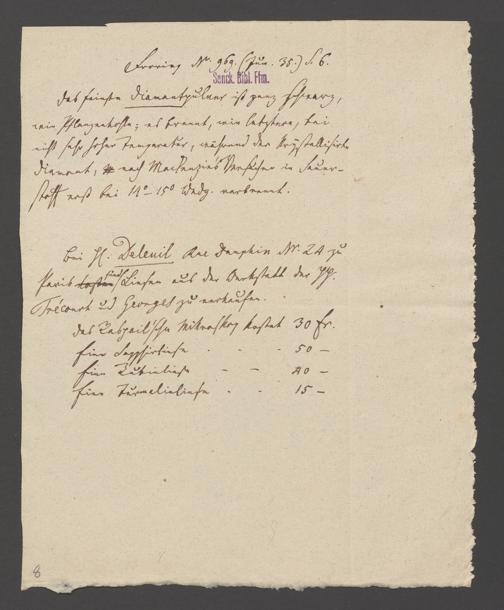 Froriep Nr. 969. (Jun. 35.) S. 6.
Senck. Bibl. Ffm.
Das feinste Diamantpulver ist ganz schwarz,
wie Pflanzenkohle; es brennt, wie letztere, bei
nicht sehr hoher Temperatur, während der krystallisirte
Diamant, nach MacKenzies Versuchen in Sauer-
stoff erst bei 14° – 15° Wedg. verbrennt.
Bei H. Deleuil Rue Dauphin Nr. 24 zu
Paris sind Linsen aus der Werkstatt der HH.
Trécourt und Georges zu verkaufen.
Das Raspail'sche Mikroskop kostet 30 Fr.
Eine Sapphirlinse - - - 50 –
Eine Rubinlinse - - 40 –
Eine Turmalinlinse - - 15 –
8